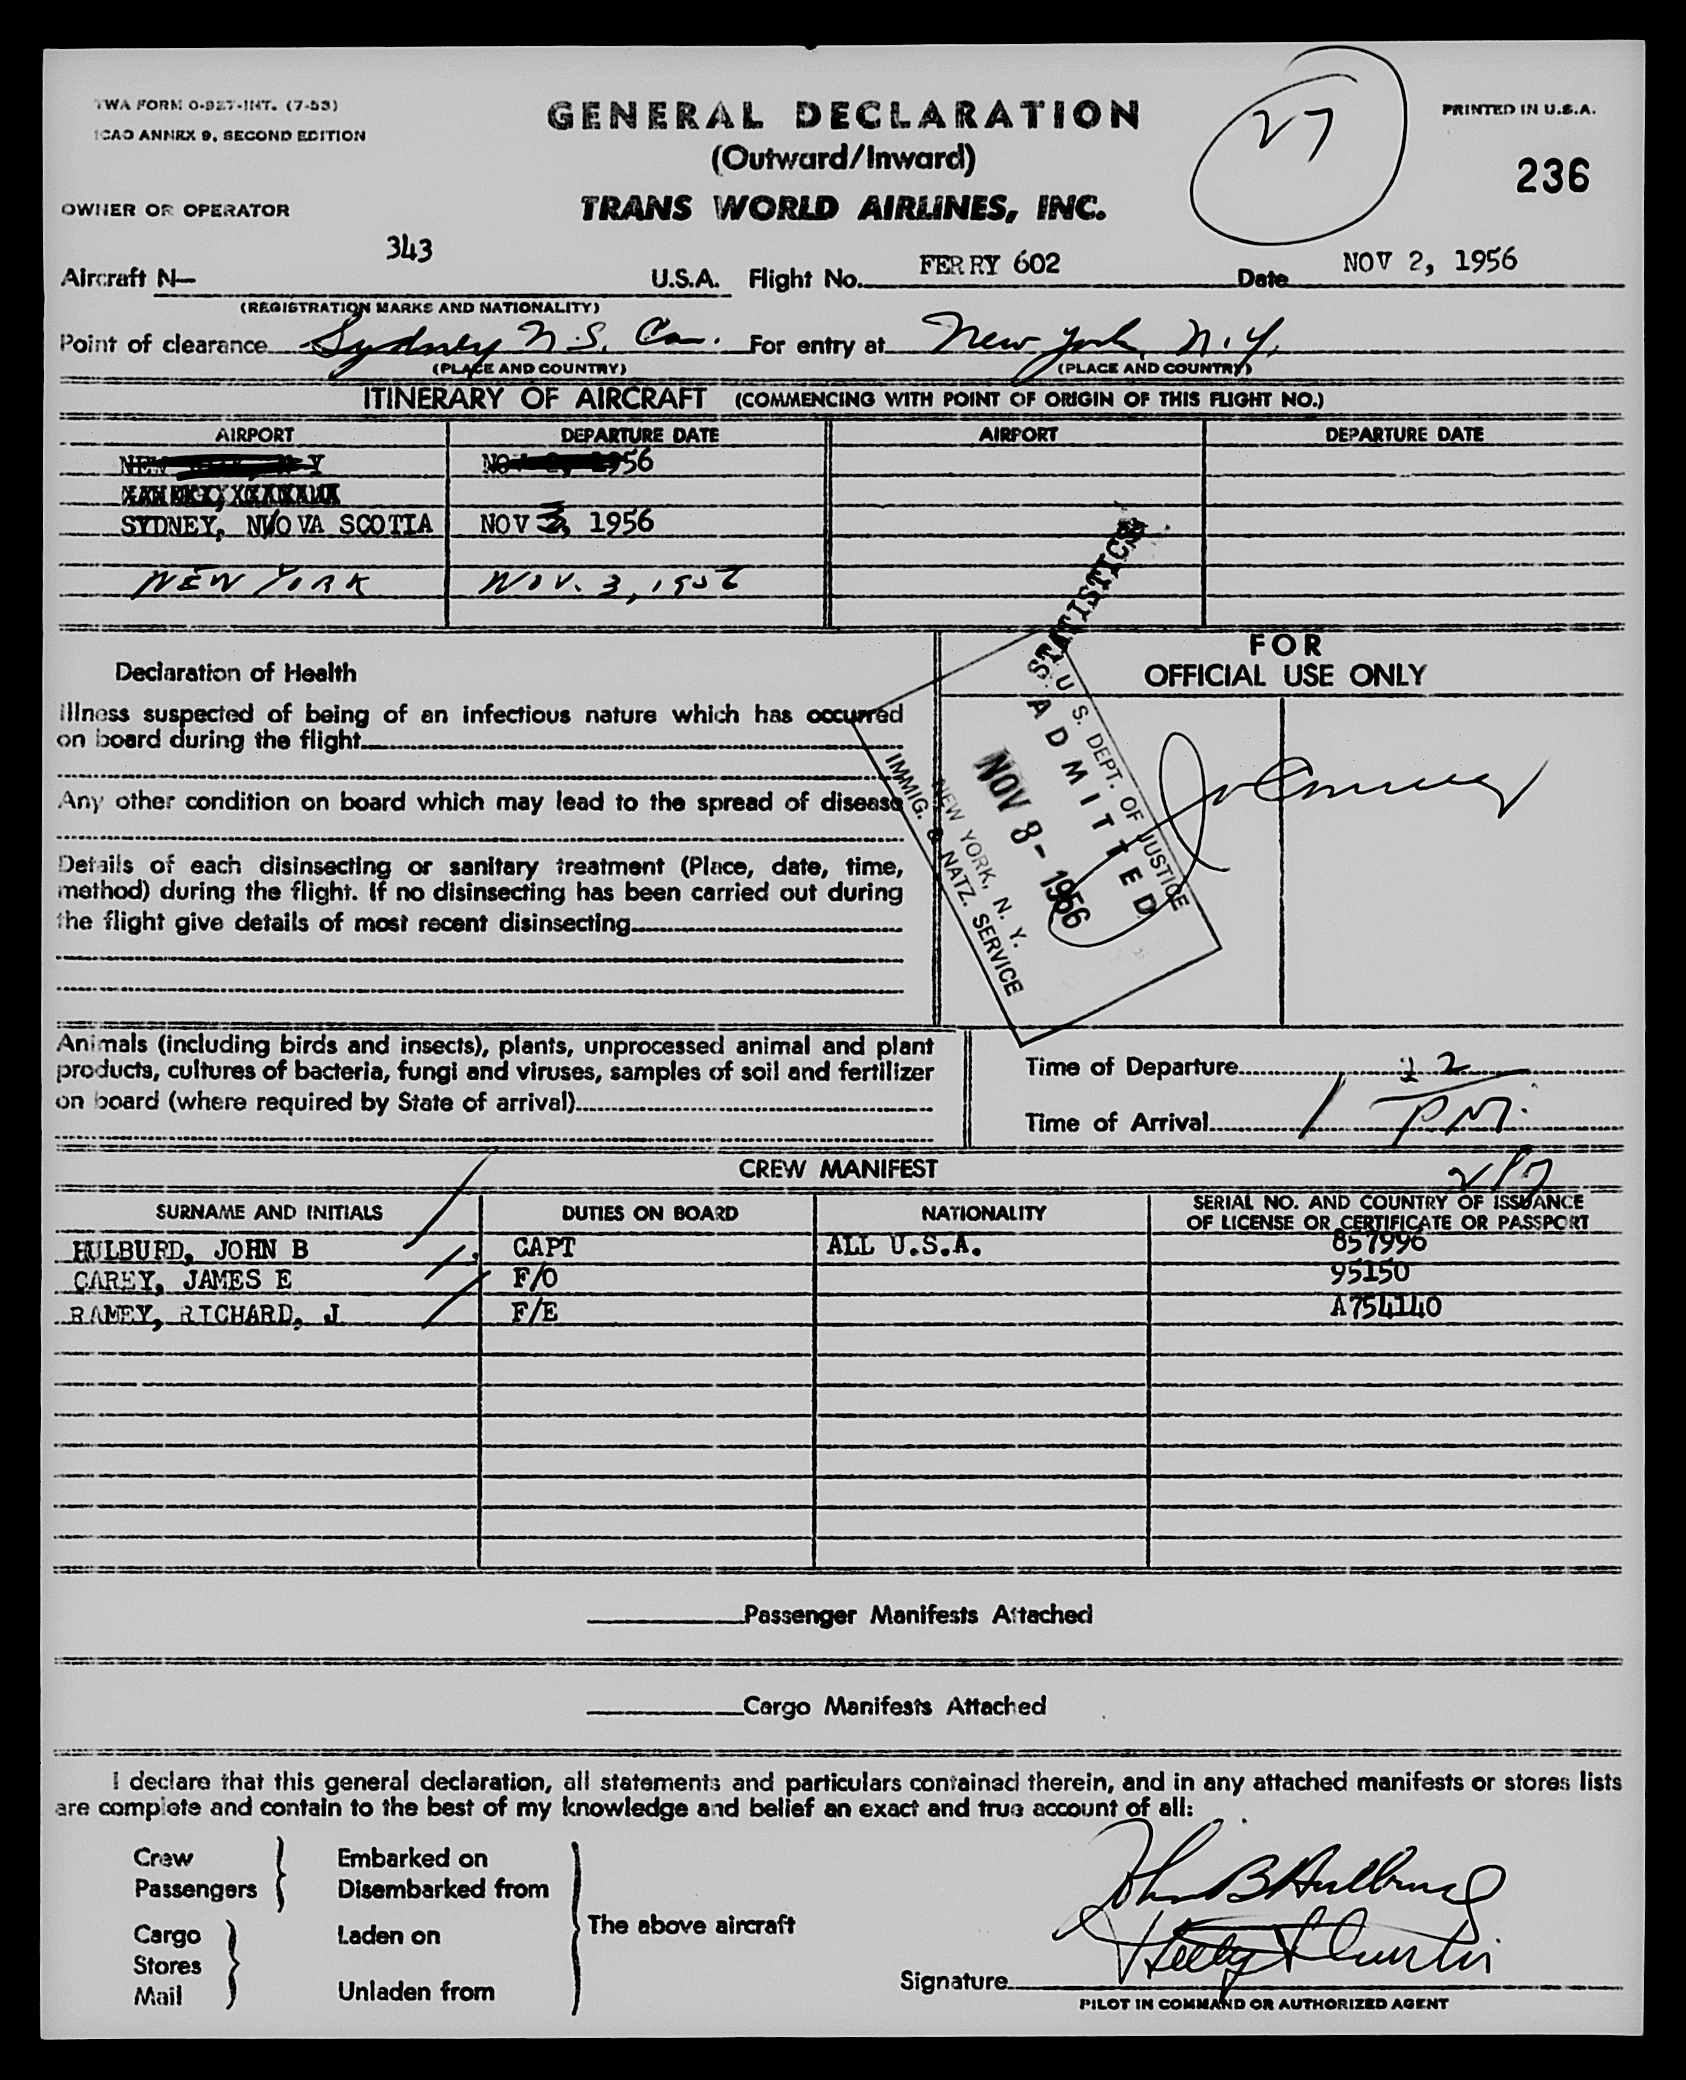 TWA FORM O-927-INT. (7-53)
ICAO ANNEX 9, SECOND EDITION
GENERAL DECLARATION
(Outward/Inward)
TRANS WORLD AIRLINES, INC.
27
PRINTED IN U.S.A.
236
OWNER OR OPERATOR
Aircraft N— 343 U.S.A. Flight No. FERRY 602 Date NOV 2, 1956
(REGISTRATION MARKS AND NATIONALITY)
Point of clearance Sydney N.S. Can. For entry at New York, N.Y.
(PLACE AND COUNTRY) (PLACE AND COUNTRY)
ITINERARY OF AIRCRAFT (COMMENCING WITH POINT OF ORIGIN OF THIS FLIGHT NO.)
AIRPORT DEPARTURE DATE AIRPORT DEPARTURE DATE
SYDNEY, NOVA SCOTIA NOV 3, 1956
NEW YORK NOV. 3, 1956
STATISTICS
FOR
OFFICIAL USE ONLY
Declaration of Health
Illness suspected of being of an infectious nature which has occurred
on board during the flight
Any other condition on board which may lead to the spread of disease
Details of each disinsecting or sanitary treatment (Place, date, time,
method) during the flight. If no disinsecting has been carried out during
the flight give details of most recent disinsecting
U. S. DEPT. OF JUSTICE
ADMITTED
NOV 8 - 1956
NEW YORK, N. Y.
IMMIG. & NATZ. SERVICE
Animals (including birds and insects), plants, unprocessed animal and plant
products, cultures of bacteria, fungi and viruses, samples of soil and fertilizer
on board (where required by State of arrival)
Time of Departure
Time of Arrival PM.
CREW MANIFEST
SURNAME AND INITIALS DUTIES ON BOARD NATIONALITY SERIAL NO. AND COUNTRY OF ISSUANCE
OF LICENSE OR CERTIFICATE OR PASSPORT
HULBURD, JOHN B CAPT ALL U.S.A. 857996
CAREY, JAMES E F/O 95150
RAMEY, RICHARD, J F/E A754140
Passenger Manifests Attached
Cargo Manifests Attached
I declare that this general declaration, all statements and particulars contained therein, and in any attached manifests or stores lists
are complete and contain to the best of my knowledge and belief an exact and true account of all:
Crew
Passengers
Embarked on
Disembarked from
Cargo
Stores
Mail
Laden on
Unladen from
The above aircraft
John B Hulburd
Signature
PILOT IN COMMAND OR AUTHORIZED AGENT